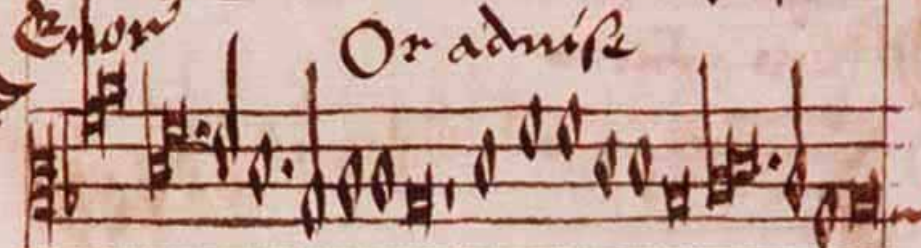 Tenor
Or aduise